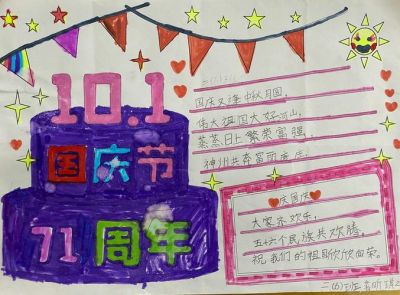 10.1
国庆节
71周年
国庆又逢中秋月圆，
伟大祖国大好河山，
蒸蒸日上繁荣富强，
神州共奔
庆国庆
大家齐欢乐，
五十六个民族共欢腾，
祝我们的祖国欣欣向荣。